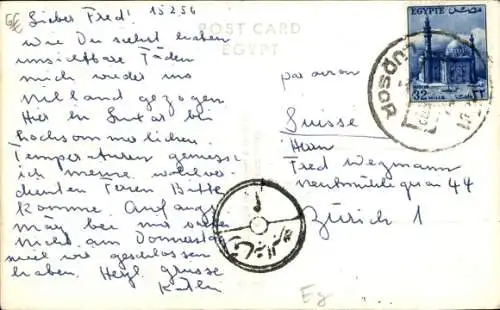 Lieber Fred! 15 2 54
Wie Du siehst haben
unsichtbare Fäden
mich wieder ins
Nilland gezogen
Hier in Luxor bei
hochsommerlichen
Temperaturen geniesse
ich meine wohlver-
dienten Ferien Bitte
komme Anfangs
März bei mir
nicht am Donnerstag
weil wir geschlossen
haben. Herzl. Grüsse
POST CARD
EGYPT
par avion
Suisse
Herrn
Fred Wegmann
Neumühlequai 44
Zürich 1
EGYPTE
32 MILLS
Eg